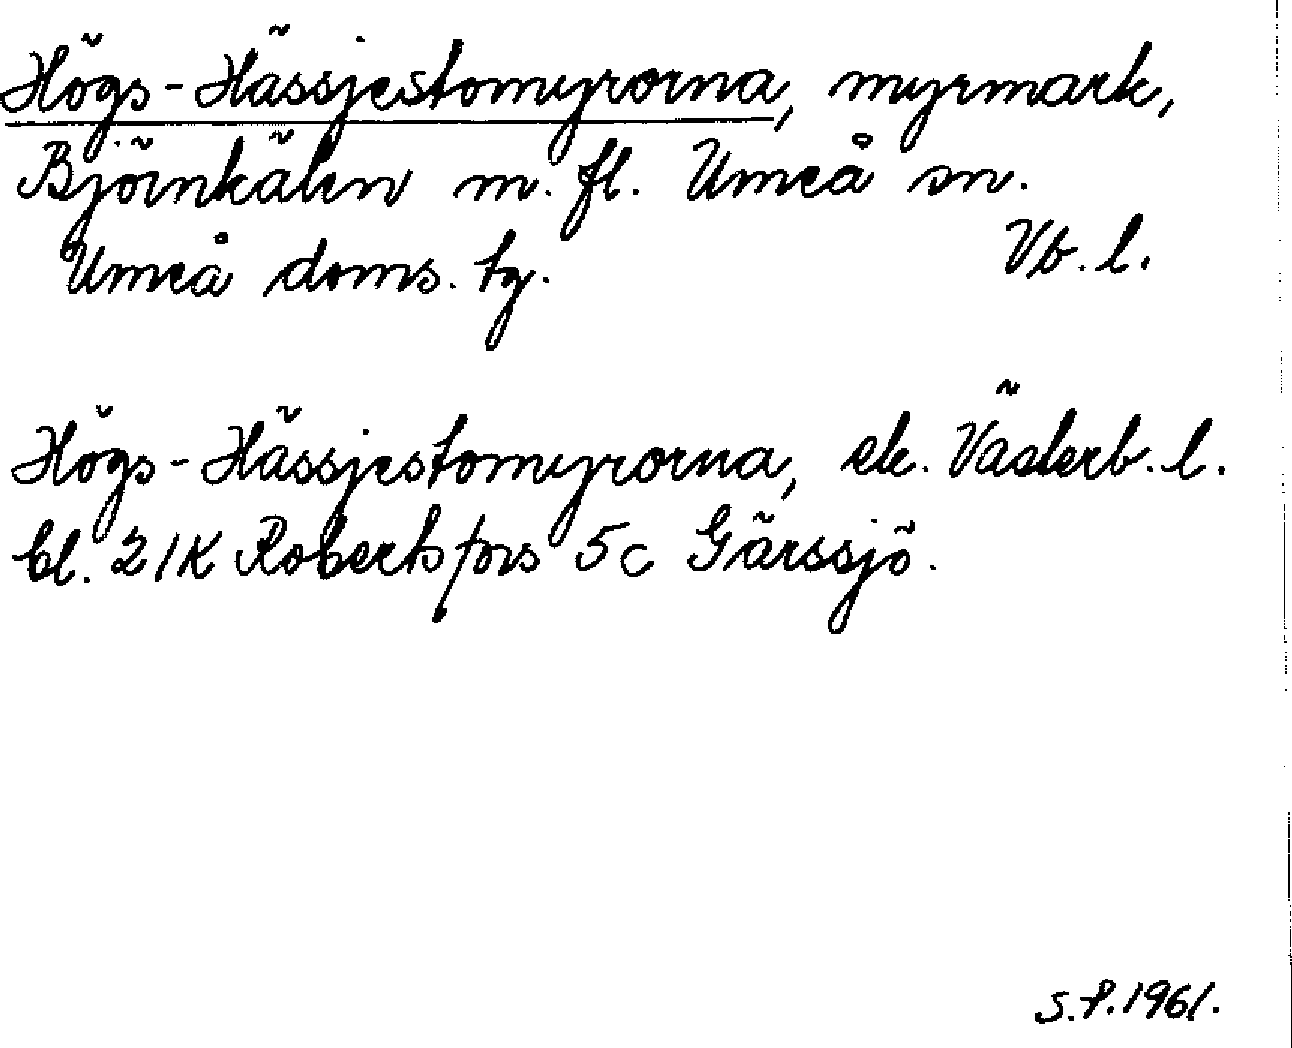 Högs-Hässjestomyrorna, myrmark,
Björnkälen m. fl. Umeå sn.
Umeå doms. tg. Vb. l.
Högs-Hässjestomyrorna, ek. Västerb. l.
bl. 21K Robertsfors 5c Gärssjö.
S.P. 1961.